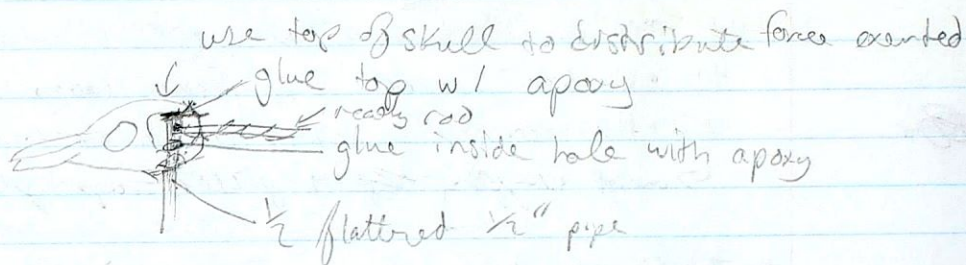 use top of skull to distribute force exerted
glue top w/ apoxy
ready rod
glue inside hole with apoxy
1/2 flattered 1/2" pipe